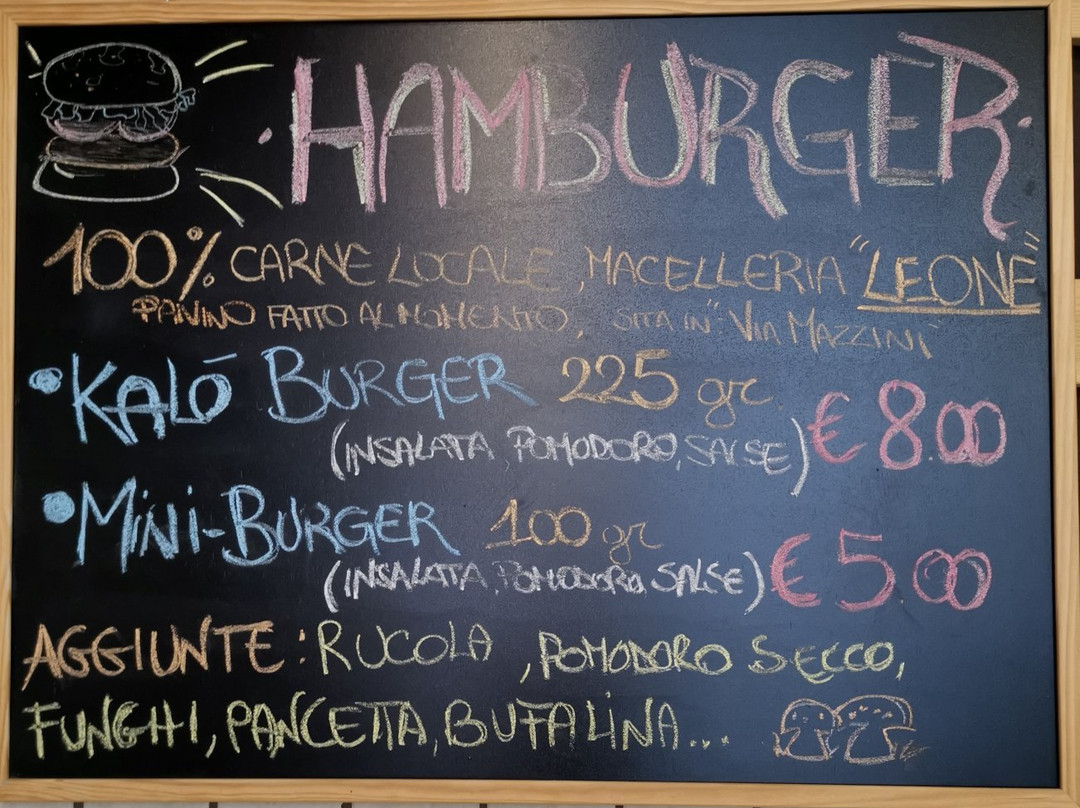 · HAMBURGER ·
100% CARNE LOCALE, MACELLERIA "LEONE"
PANINO FATTO AL MOMENTO, SITA IN "VIA MAZZINI"
• KALÓ BURGER 225 gr
(INSALATA POMODORO, SALSE) € 8.00
• MINI-BURGER 100 gr
(INSALATA, POMODORO, SALSE) € 5.00
AGGIUNTE: RUCOLA, POMODORO SECCO,
FUNGHI, PANCETTA, BUFALINA...